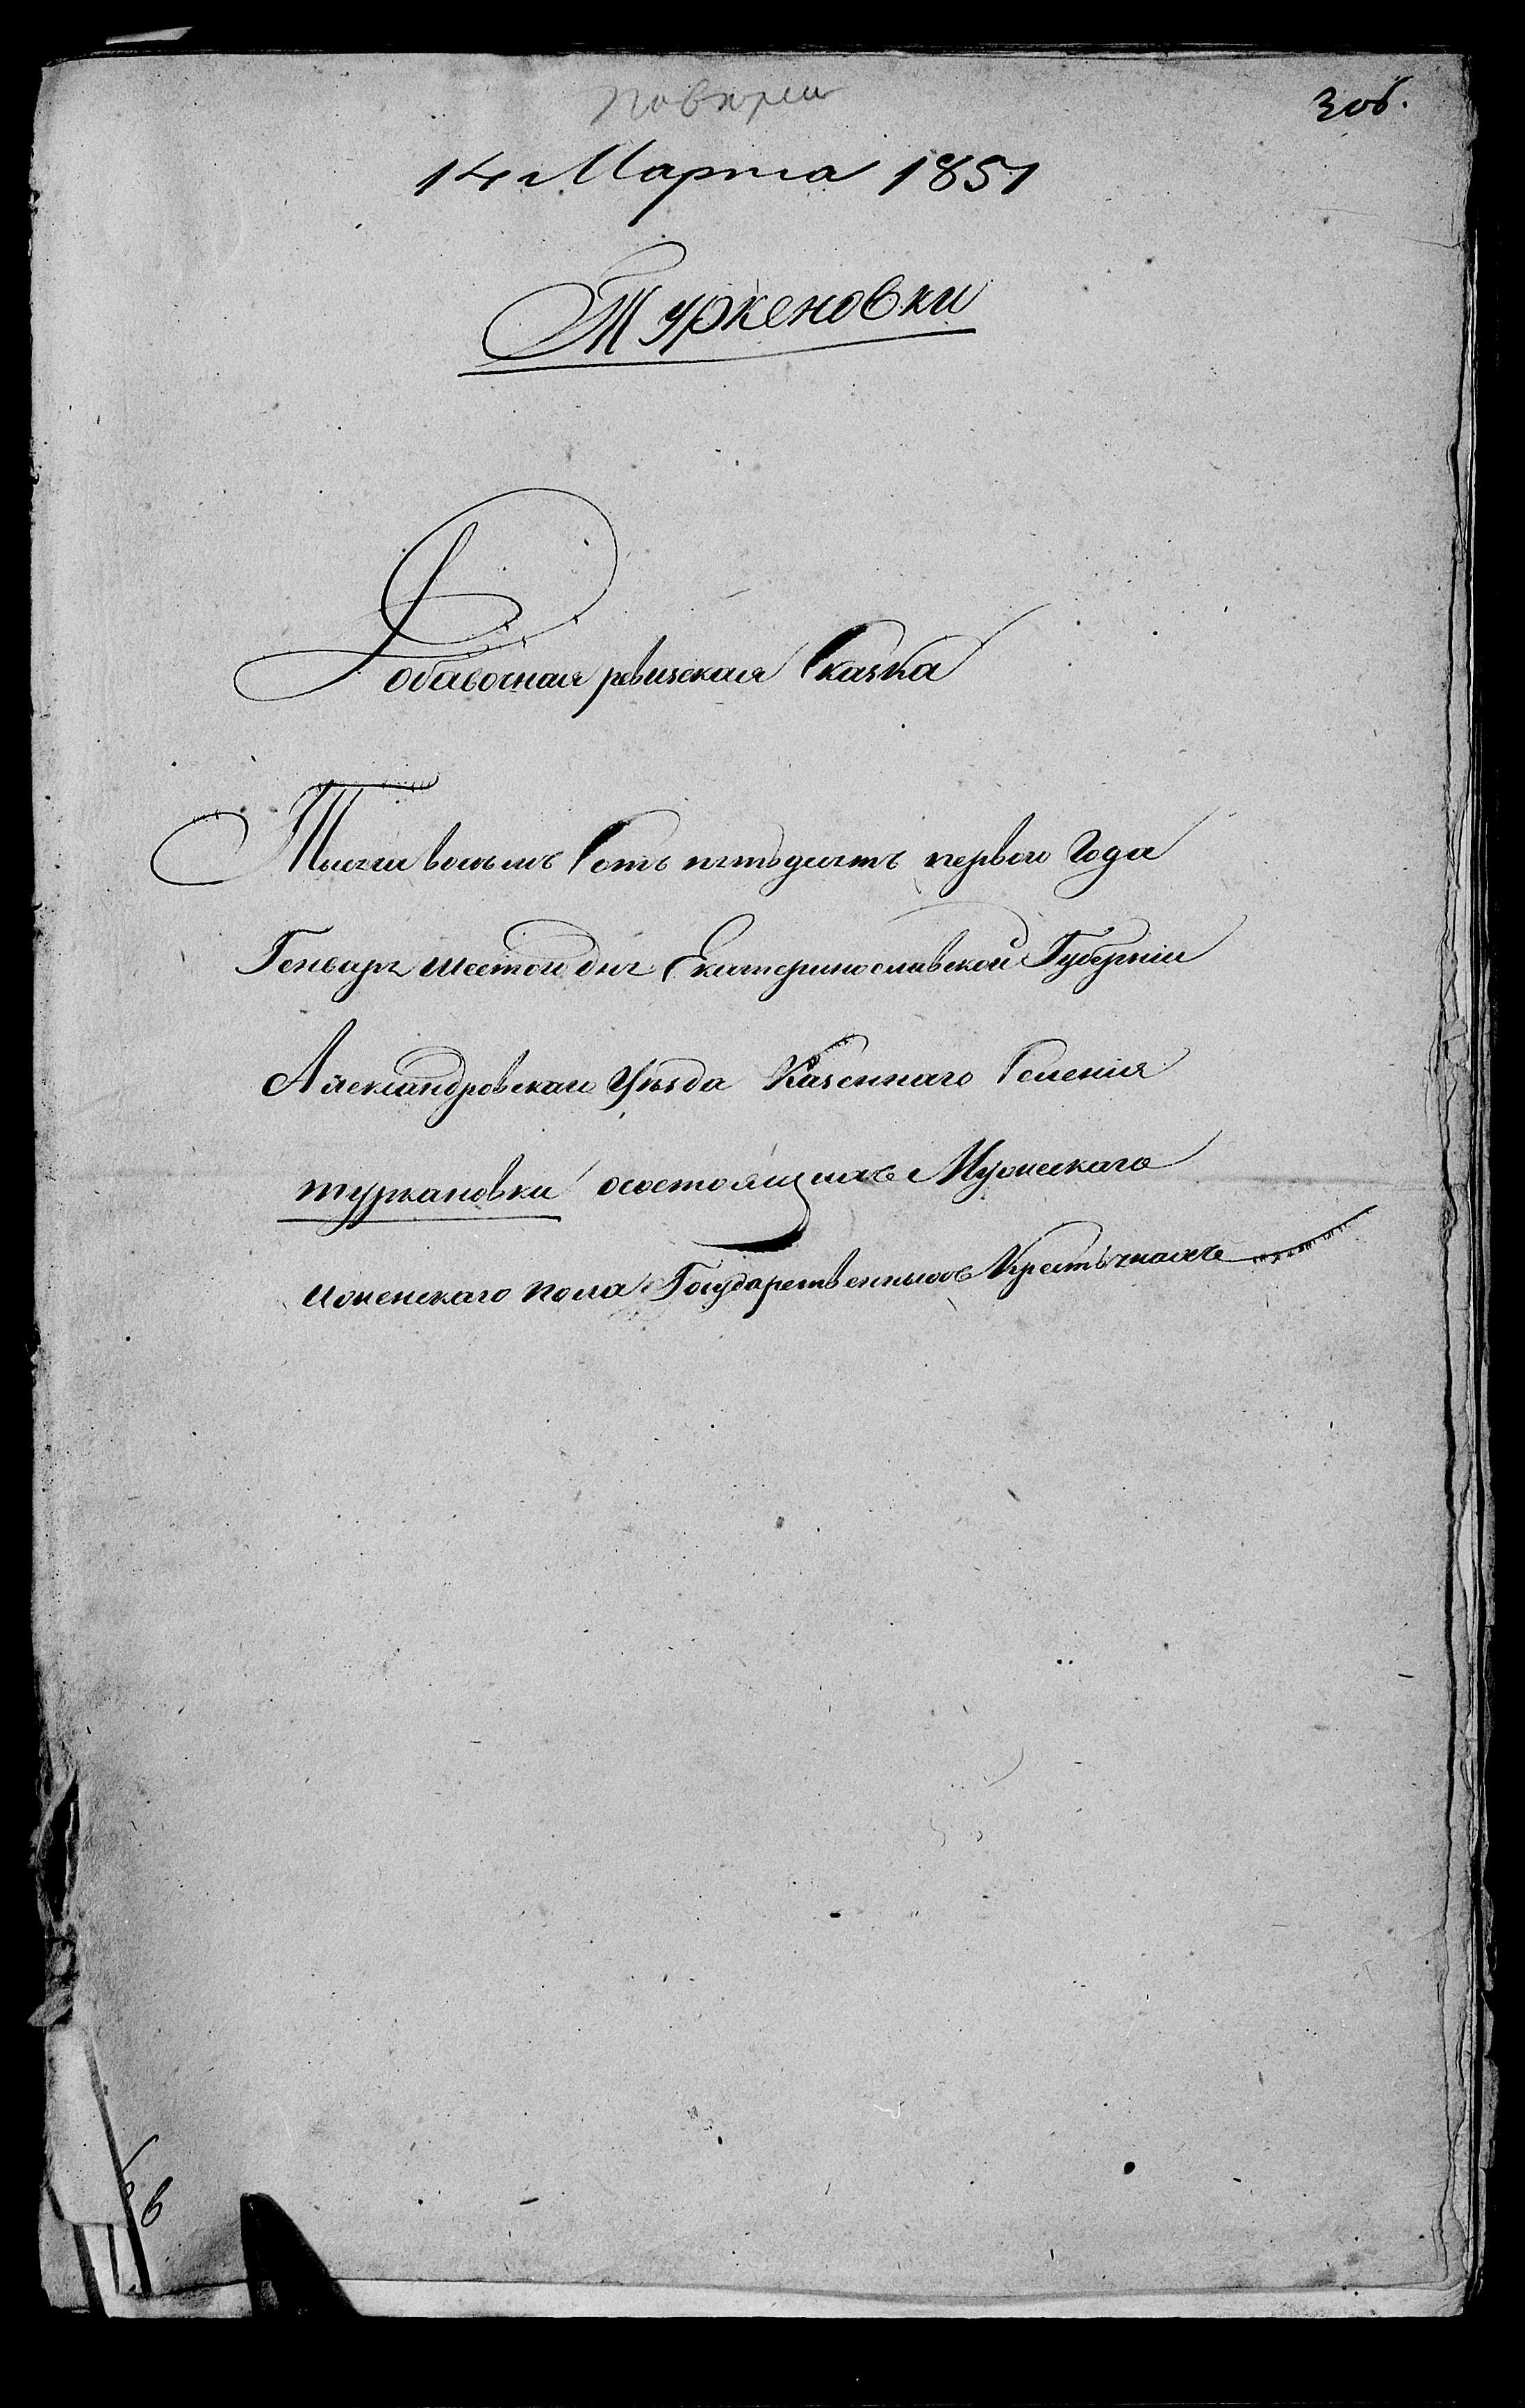 306.
14 Марта 1851
Туркеновки
Добавочная ревизская Сказка
Тысяча восемь Сотъ пятьдесятъ первого Года
Генваря шестого дня Екатеринославской Губерніи
Александровскаго Уѣзда Казеннаго Селенія
туркановки осостоящихъ Мужескаго
иженскаго пола Государственныхъ Крестьянахъ